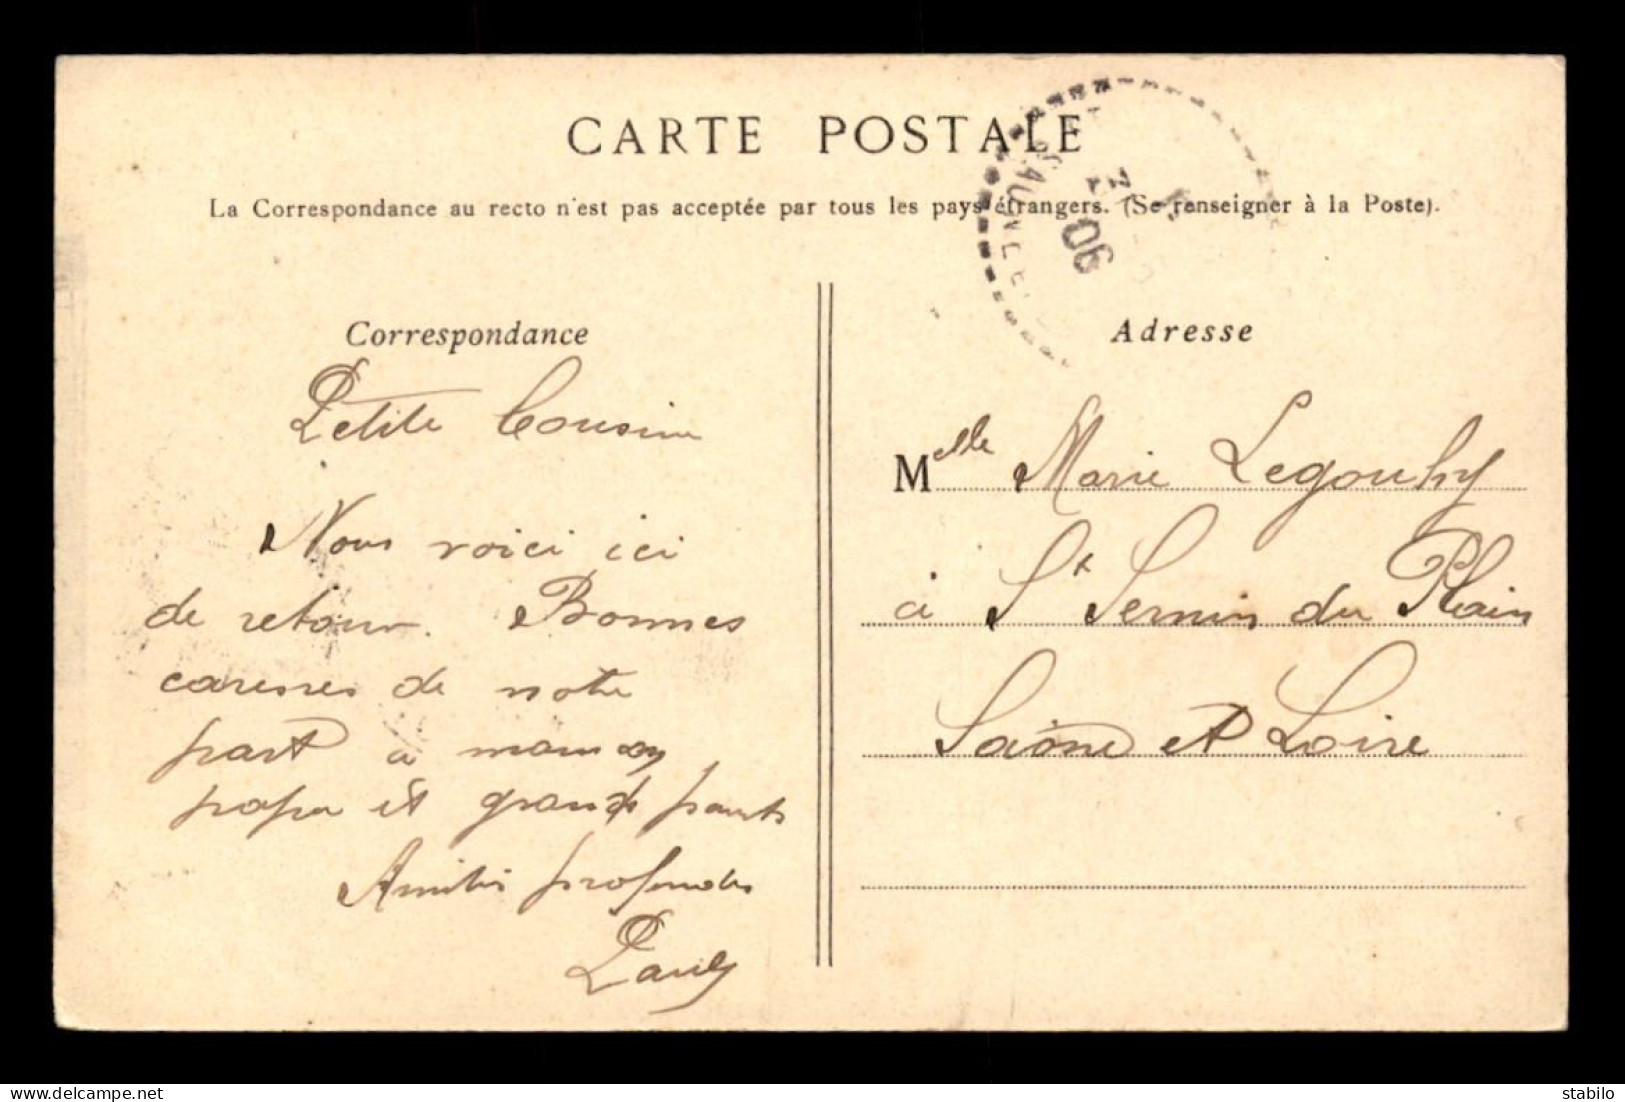 CARTE POSTALE
La Correspondance au recto n'est pas acceptée par tous les pays étrangers. (Se renseigner à la Poste).
06
Correspondance
Petite Cousine
Nous voici ici
de retour. Bonnes
caresses de notre
part à maman
papa et grands parents
Amitiés profondes
Adresse
Melle Marie Legouhy
à St Sernin du Plain
Saône et Loire
stabilo